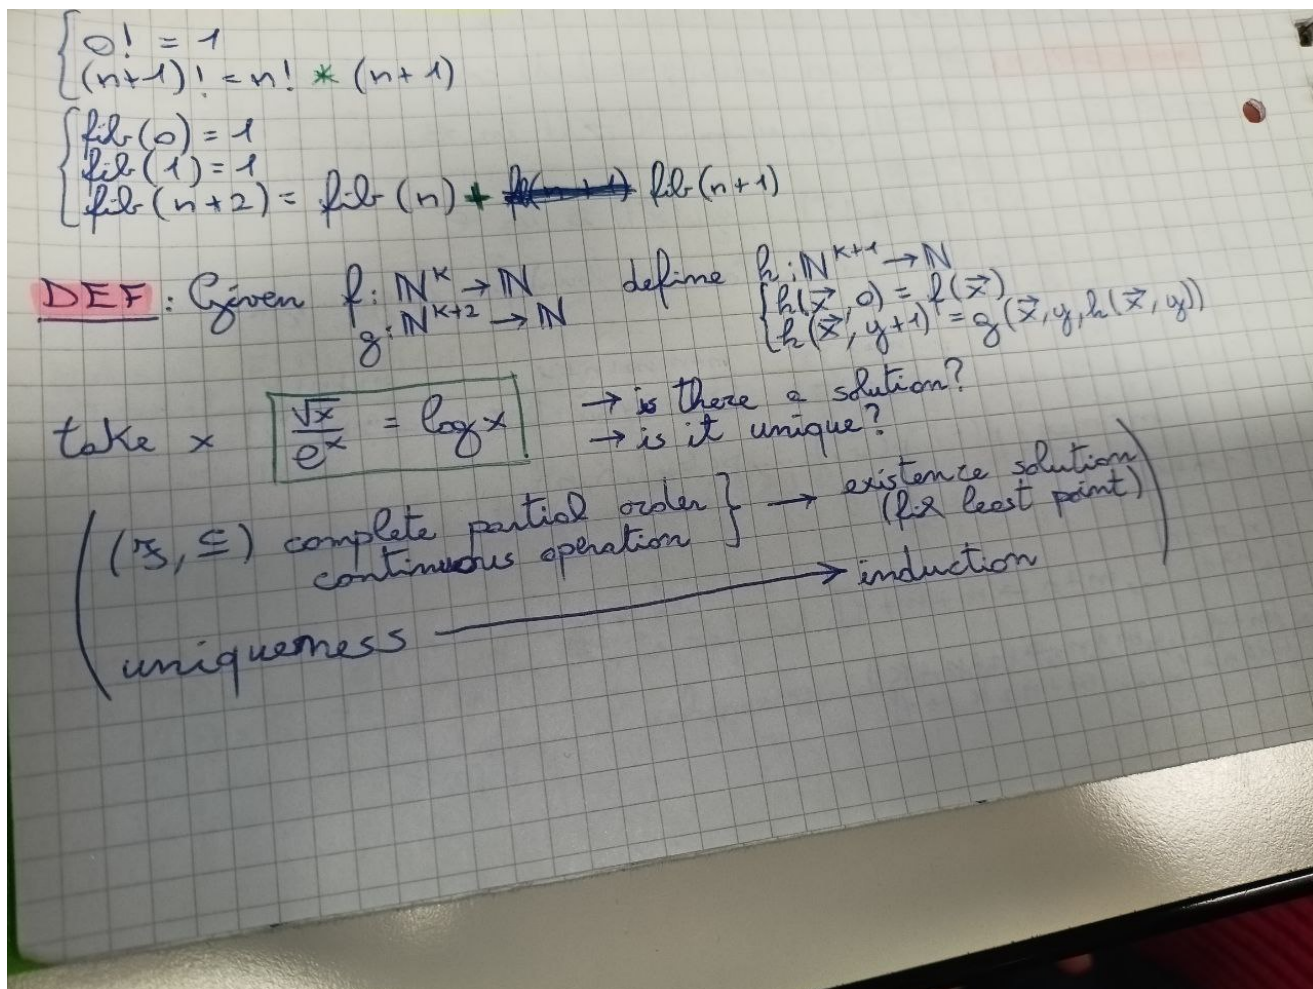 0! = 1
(n+1)! = n! * (n+1)
fib(0) = 1
fib(1) = 1
fib(n+2) = fib(n) + fib(n+1)
DEF: Given f: ℕ^k → ℕ define h: ℕ^{k+1} → ℕ
g: ℕ^{k+2} → ℕ
h(x⃗, 0) = f(x⃗)
h(x⃗, y+1) = g(x⃗, y, h(x⃗, y))
take x √x / e^x = log x → is there a solution?
→ is it unique?
(𝔉, ≤) complete partial order } → existence solution
continuous operation (fix least point)
uniqueness → induction